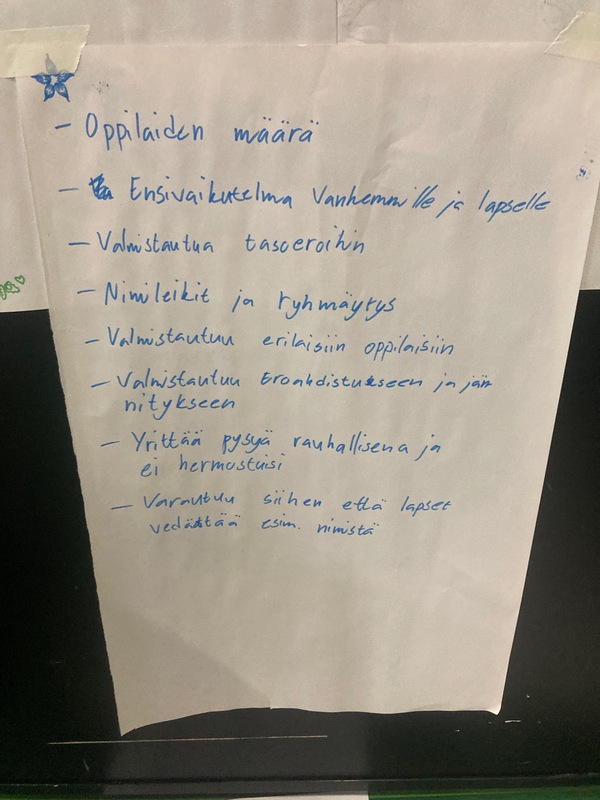 - Oppilaiden määrä
- Ensivaikutelma Vanhemmille ja lapselle
- Valmistautua tasoeroihin
- Nimileikit ja ryhmäytys
- Valmistautuu erilaisiin oppilaisiin
- Valmistautuu Eroahdistukseen ja jän
nitykseen
- Yrittää pysyä rauhallisena ja
ei hermostuisi
- Varautuu siihen että lapset
vedättää esim. nimistä